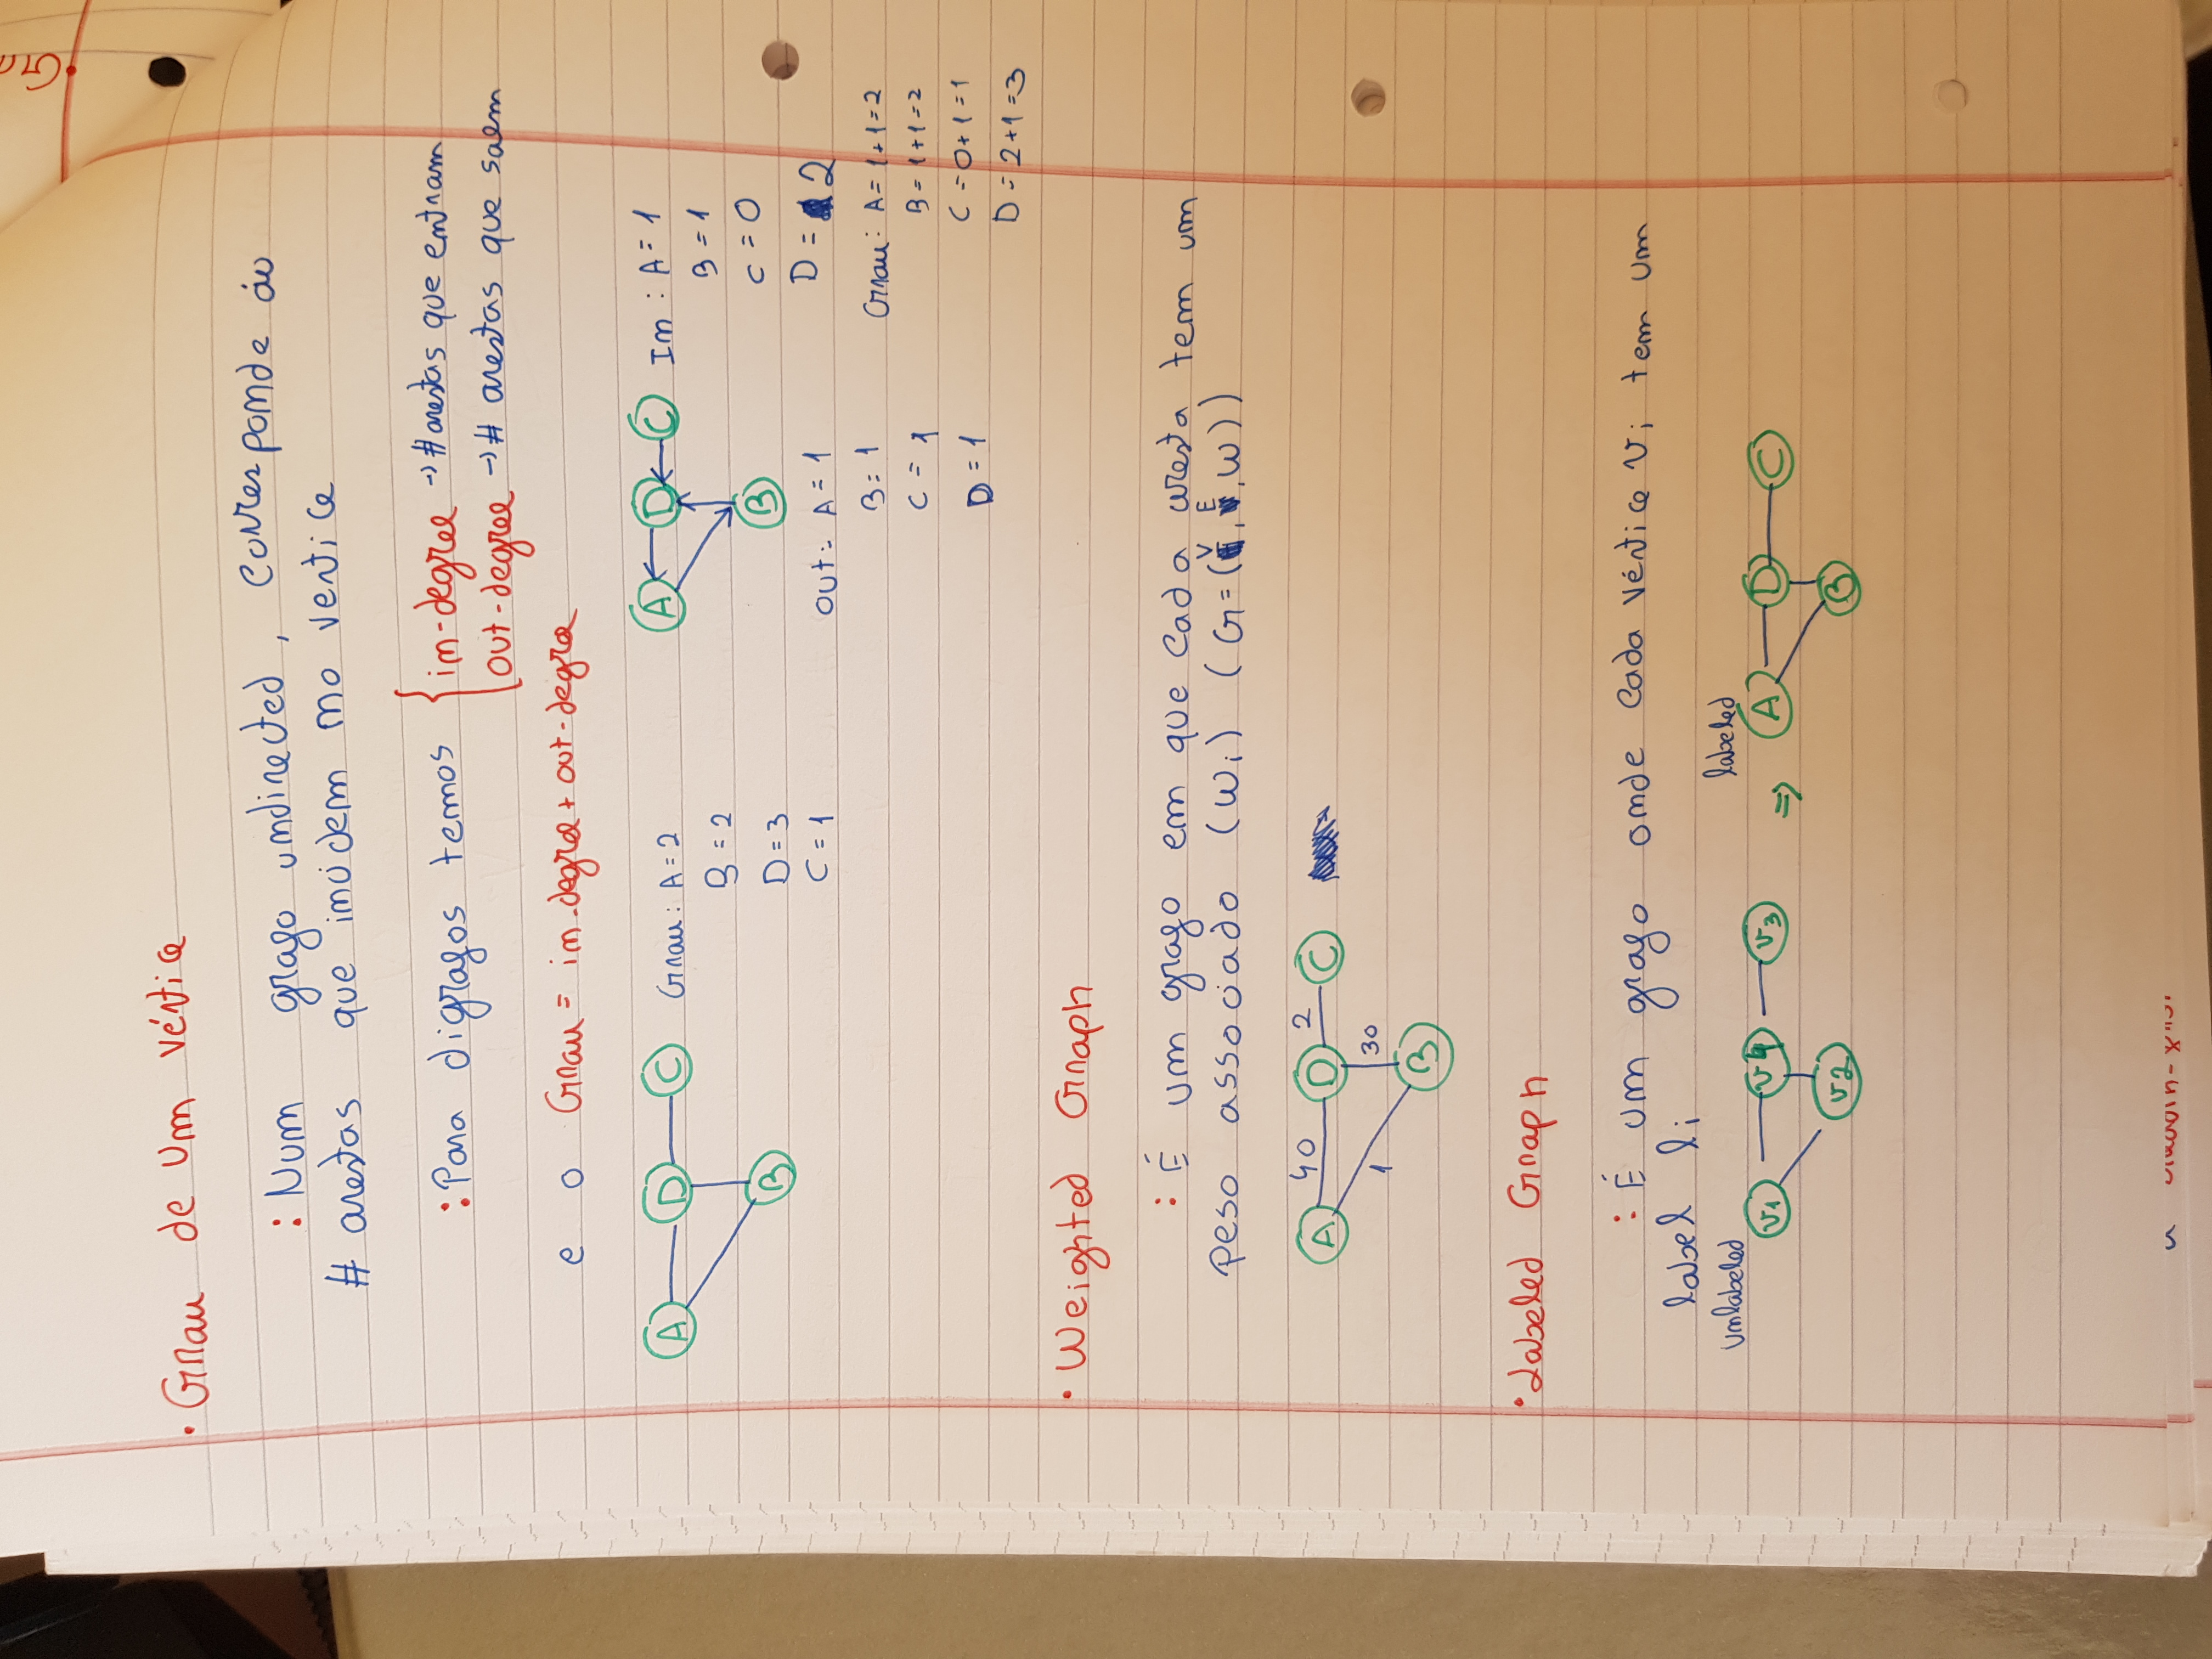 • Grau de um vértice
: Num grafo undirected, corresponde áo
# arestas que incidem no vertice
: Para digrafos temos { in-degree → # arestas que entram
out-degree → # arestas que saem
e o Grau = in-degree + out-degree
A D C Grau: A = 2
B = 2
B
D = 3
C = 1
A D C In: A = 1
B = 1
C = 0
B
D = 2
Out: A = 1
B = 1
C = 1
D = 1
Grau: A = 1+1=2
B = 1+1=2
C = 0+1=1
D = 2+1=3
• Weighted Graph
: É um grafo em que cada aresta tem um
peso associado (wi) (G=(V, E, W))
A 40 D 2 C
1 30
B
• Labeled Graph
: É um grafo onde cada vértice vi tem um
label li
unlabeled
v1 v4 v3
v2
⇒
labeled
A D C
B